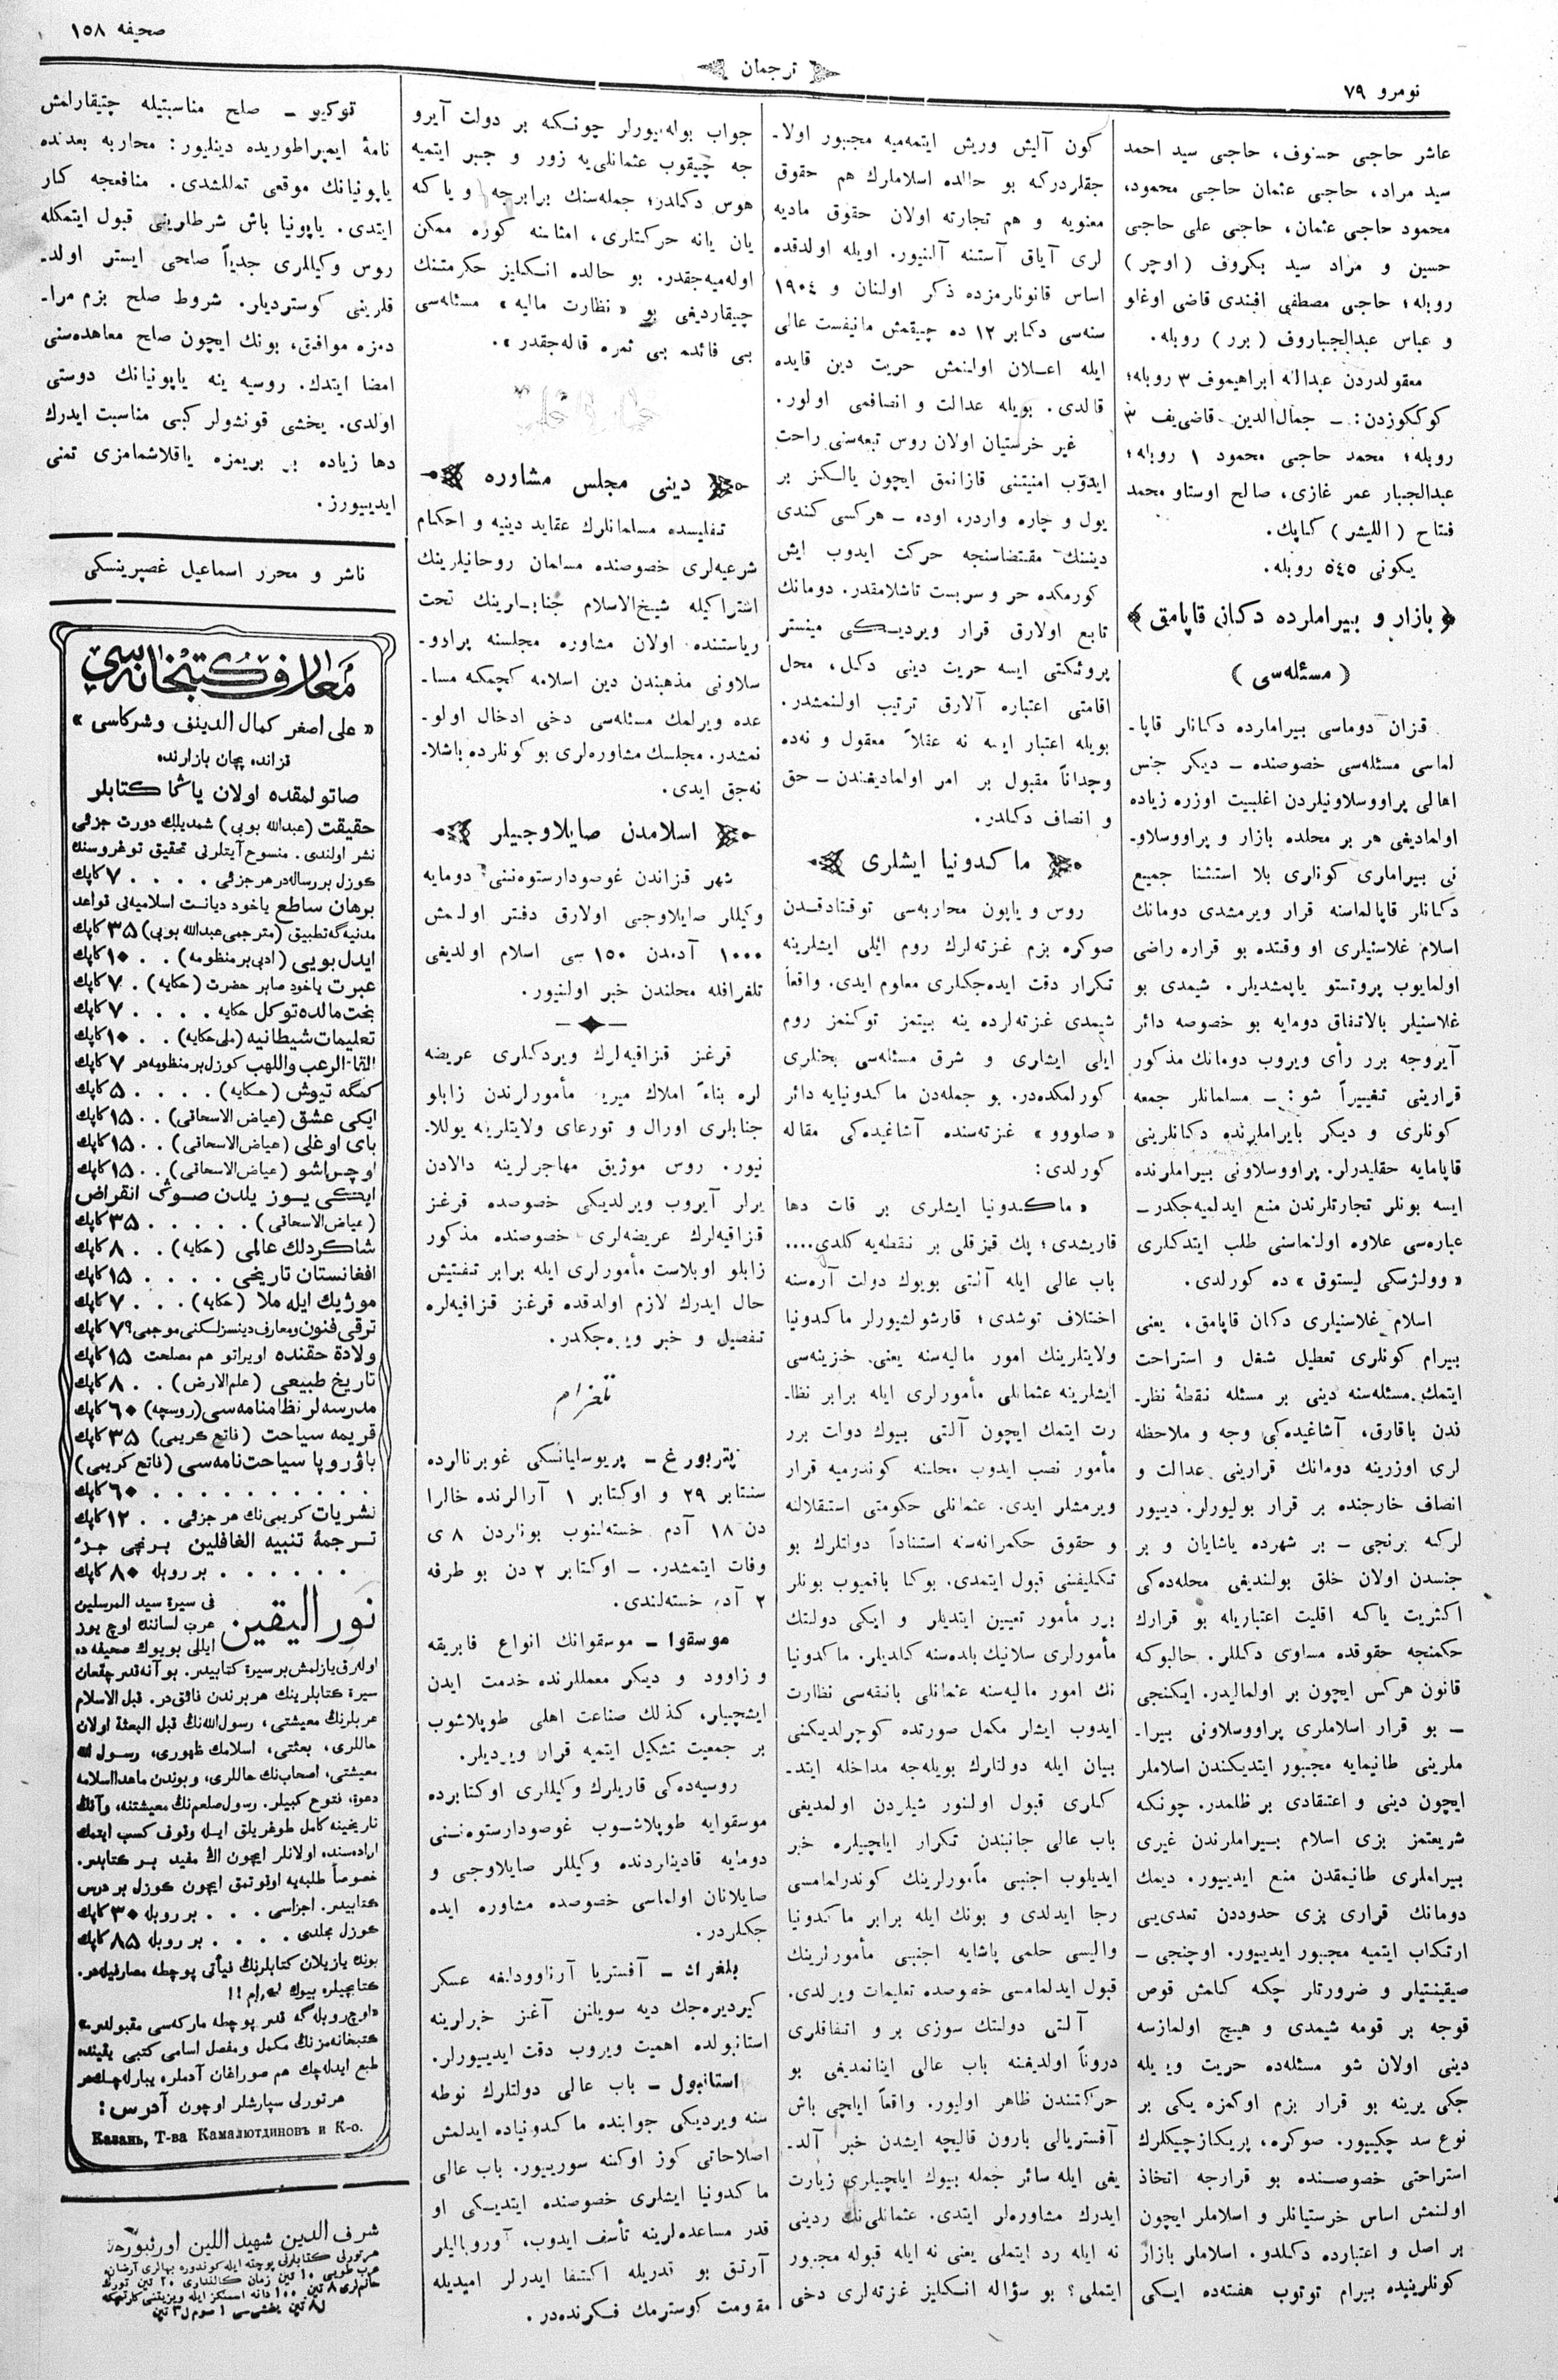 نومرو ٧٩
ترجمان
صحیفه ١٥٨
عاشر حاجی حسنوف، حاجی سید احمد
سید مراد، حاجی عثمان حاجی محمود،
محمود حاجی عثمان، حاجی علی حاجی
حسین و مراد سید بکروف (اوچر)
روبله؛ حاجی مصطفی افندی قاضی اوغلو
و عباس عبدالجباروف (برر) روبله.
معقولدردن عبدالله ابراهیموف ٣ روبله؛
کوککوزدن: ـ جمال‌الدین قاضی‌یف ٣
روبله؛ محمد حاجی محمود ١ روبله؛
عبدالجبار عمر غازی، صالح اوستاو محمد
فتاح (اللیشر) کپاپك.
یکونی ٥٤٥ روبله.
﴿ بازار و بیراملرده دکانی قاپامق ﴾
(مسئله‌سی)
قزان دوماسی بیراملرده دکانلر قاپا-
لماسی مسئله‌سی خصوصنده ـ دیکر جنس
اهالی پراووسلاونیلردن اغلبیت اوزره زیاده
اولمادیغی هر بر محلده بازار و پراووسلاو-
نی بیراملری کونلری بلا استثنا جمیع
دکانلر قاپالماسنه قرار ویرمشدی دومانك
اسلام غلاسنیلری او وقتده بو قراره راضی
اولمایوب پروتستو یاپمشدیلر. شیمدی بو
غلاسنیلر بالاتفاق دومایه بو خصوصه دائر
آیروجه برر رأی ویروب دومانك مذکور
قرارینی تغییراً شو: ـ مسلمانلر جمعه
کونلری و دیکر بایراملرنده دکانلرینی
قاپامایه حقلیدرلر. پراووسلاونی بیراملرنده
ایسه بونلر تجارتلرندن منع ایدلمیه‌جکدر ـ
عباره‌سی علاوه اولنماسنی طلب ایتدکلری
«وولژسکی لیستوق» ده کورلدی.
اسلام غلاسنیلری دکان قاپامق، یعنی
بیرام کونلری تعطیل شغل و استراحت
ایتمك مسئله‌سنه دینی بر مسئله نقطهٔ نظر-
ندن باقارق، آشاغیده‌کی وجه و ملاحظه
لری اوزرینه دومانك قرارینی عدالت و
انصاف خارجنده بر قرار بولیورلر. دییور
لرکه برنجی ـ بر شهرده یاشایان و بر
جنسدن اولان خلق بولندیغی محله‌ده‌کی
اکثریت یاکه اقلیت اعتباریله بو قرارك
حکمنجه حقوقده مساوی دکللر. حالبوکه
قانون هرکس ایچون بر اولمالیدر. ایکنجی
ـ بو قرار اسلاملری پراووسلاونی بیرا-
ملرینی طانیمایه مجبور ایتدیکندن اسلاملر
ایچون دینی و اعتقادی بر ظلمدر. چونکه
شریعتمز بزی اسلام بیراملرندن غیری
بیراملری طانیمقدن منع ایدییور. دیمك
دومانك قراری بزی حدوددن تعدی‌یی
ارتکاب ایتمیه مجبور ایدییور. اوچنجی ـ
صیقینتیلر و ضرورتلر چکه کلمش قوص
قوجه بر قومه شیمدی و هیچ اولمازسه
دینی اولان شو مسئله‌ده حریت ویریله
جکی یرینه بو قرار بزم اوکمزه یکی بر
نوع سد چکییور. صوکره، پریکازچیکلرك
استراحتی خصوصنده بو قرارجه اتخاذ
اولنمش اساس خرستیانلر و اسلاملر ایچون
بر اصل و اعتبارده دکلدو. اسلاملر بازار
کونلرینیده بیرام توتوب هفته‌ده ایکی
کون آلیش وریش ایتمه‌میه مجبور اولا-
جقلردرکه بو حالده اسلاملرك هم حقوق
معنویه و هم تجارته اولان حقوق مادیه
لری آیاق آستنه آلنیور. اویله اولدقده
اساس قانونلرمزده ذکر اولنان و ١٩٠٤
سنه‌سی دکابر ١٢ ده چیقمش مانیفست عالی
ایله اعلان اولنمش حریت دین قایده
قالدی. بویله عدالت و انصافمی اولور.
غیر خرستیان اولان روس تبعه‌سنی راحت
ایدوب امنیتنی قازانمق ایچون یالکز بر
یول و چاره واردر، اوده ـ هرکسی کندی
دیننك مقتضاسنجه حرکت ایدوب ایش
کورمکده حر و سربست تاشلامقدر. دومانك
تابع اولارق قرار ویردیکی مینستر
پروئکتی ایسه حریت دینی دکل، محل
اقامتی اعتباره آلارق ترتیب اولنمشدر.
بویله اعتبار ایسه نه عقلاً معقول و نه‌ده
وجداناً مقبول بر امر اولمادیغندن ـ حق
و انصاف دکلدر.
ماکدونیا ایشلری
روس و یاپون محاربه‌سی توقتادقدن
صوکره بزم غزته‌لرك روم ائلی ایشلرینه
تکرار دقت ایده‌جکلری معلوم ایدی. واقعاً
شیمدی غزته‌لرده ینه بیتمز توکنمز روم
ایلی ایشلری و شرق مسئله‌سی بحثلری
کورلمکده‌در. بو جمله‌دن ماکدونیایه دائر
«صلووو» غزته‌سنده آشاغیده‌کی مقاله
کورلدی:
«ماکدونیا ایشلری بر قات دها
قاریشدی؛ پك قیزقلی بر نقطه‌یه کلدی....
باب عالی ایله آلتی بویوك دولت آره‌سنه
اختلاف توشدی؛ قارشولشیورلر ماکدونیا
ولایتلرینك امور مالیه‌سنه یعنی خزینه‌سی
ایشلرینه عثمانلی مأمورلری ایله برابر نظا-
رت ایتمك ایچون آلتی بیوك دولت برر
مأمور نصب ایدوب محلینه کوندرمیه قرار
ویرمشلر ایدی. عثمانلی حکومتی استقلالنه
و حقوق حکمرانه‌سنه استناداً دولتلرك بو
تکلیفنی قبول ایتمدی. بوکا باقمیوب بونلر
برر مأمور تعیین ایتدیلر و ایکی دولتك
مأمورلری سلانیك بلده‌سنه کلدیلر. ماکدونیا
نك امور مالیه‌سنه عثمانلی بانقه‌سی نظارت
ایدوب ایشلر مکمل صورتده کوچرلدیکنی
بیان ایله دولتلرك بویله‌جه مداخله ایتد-
کلری قبول اولنور شیلردن اولمدیغی
باب عالی جانبندن تکرار ایلچیلره خبر
ایدیلوب اجنبی مأمورلرینك کوندرلمامسی
رجا ایدلدی و بونك ایله برابر ماکدونیا
والیسی حلمی پاشایه اجنبی مأمورلرینك
قبول ایدلمامسی خصوصده تعلیمات ویرلدی.
آلتی دولتك سوزی بر و اتفاقلری
دروناً اولدیغنه باب عالی اینانمدیغی بو
حرکتندن ظاهر اولیور. واقعاً ایلچی باش
آفستریالی بارون قالیچه ایشدن خبر آلد-
یغی ایله سائر جمله بیوك ایلچیلری زیارت
ایدرك مشاوره‌لر ایتدی. عثمانلی‌نك ردینی
نه ایله رد ایتملی یعنی نه ایله قبوله مجبور
ایتملی؟ بو سؤاله انکلیز غزته‌لری دخی
جواب بوله‌میورلر چونکه بر دولت آیرو
جه چیقوب عثمانلی‌یه زور و جبر ایتمیه
هوس دکلدر؛ جمله‌سنك برابرجه و یاکه
یان یانه حرکتلری، امثالنه کوره ممکن
اوله‌میه‌جقدر. بو حالده انکلیز حکومتنك
چیقاردیغی بو «نظارت مالیه» مسئله‌سی
بی فائده بی ثمره قاله‌جقدر».
دینی مجلس مشاوره
تفلیسده مسلمانلرك عقاید دینیه و احکام
شرعیه‌لری خصوصنده مسلمان روحانیلرینك
اشتراکیله شیخ‌الاسلام جنابلرینك تحت
ریاستنده اولان مشاوره مجلسنه پراوو-
سلاونی مذهبندن دین اسلامه کچمکه مسا-
عده ویرلمك مسئله‌سی دخی ادخال اولو-
نمشدر. مجلسك مشاوره‌لری بو کونلرده باشلا-
نه‌جق ایدی.
اسلامدن صایلاوجیلر
شهر قزاندن غوصودارستوه‌ننی دومایه
وکیللر صایلاوجی اولارق دفتر اولنمش
١٠٠٠ آدمدن ١٥٠ سی اسلام اولدیغی
تلغرافله محلندن خبر اولنیور.
قرغز قزاقیه‌لرك ویردکلری عریضه
لره بناءً املاك میریه مأمورلرندن زابلو
جنابلری اورال و تورغای ولایتلرینه یوللا-
نیور. روس موژیق مهاجرلرینه دالادن
یرلر آیروب ویرلدیکی خصوصده قرغز
قزاقیه‌لرك عریضه‌لری خصوصنده مذکور
زابلو اوبلاست مأمورلری ایله برابر تفتیش
حال ایدرك لازم اولدقده قرغز قزاقیه‌لره
تفصیل و خبر ویره‌جکدر.
تلغرام
پتربورغ ـ پریوسلیانسکی غوبرنالرده
سنتابر ٢٩ و اوکتابر ١ آرالرنده خالرا
دن ١٨ آدم خسته‌لنوب بونلردن ٨ ی
وفات ایتمشدر. ـ اوکتابر ٢ دن بو طرفه
٢ آدم خسته‌لندی.
موسقوا ـ موسقوانك انواع فابریقه
و زاوود و دیکر معمللرنده خدمت ایدن
ایشچیلر، کذلك صناعت اهلی طوپلاشوب
بر جمعیت تشکیل ایتمیه قرار ویردیلر.
روسیه‌ده‌کی قاریلرك وکیللری اوکتابرده
موسقوایه طوپلاشوب غوصودارستوه‌ننی
دومایه قادینلردنده وکیللر صایلاوجی و
صایلانان اولماسی خصوصده مشاوره ایده
جکلردر.
بلغراد ـ آفستریا آرناوودلغه عسکر
کیردیره‌جك دیه سویلنن آغز خبرلرینه
استانبولده اهمیت ویروب دقت ایدییورلر.
استانبول ـ باب عالی دولتلرك نوطه
سنه ویردیکی جوابنده ماکدونیاده ایدلمش
اصلاحاتی کوز اوکنه سورییور. باب عالی
ماکدونیا ایشلری خصوصنده ایتدیکی او
قدر مساعده‌لرینه تأسف ایدوب، آوروپالیلر
آرتق بو قدریله اکتفا ایدرلر امیدیله
مقاومت کوسترمك فکرنده‌در.
توکیو ـ صلح مناسبتیله چتیقارلمش
نامهٔ ایمپراطوریده دینلیور: محاربه بعدنده
یاپونیانك موقعی تماللشدی. منافعجه کار
ایتدی. یاپونیا باش شرطلرینی قبول ایتمکله
روس وکیللری جدیاً صلحی ایستر اولد-
قلرینی کوستردیلر. شروط صلح بزم مرا-
دمزه موافق، بونك ایچون صلح معاهده‌سنی
امضا ایتدك. روسیه ینه یاپونیانك دوستی
اولدی. یخشی قونشولر کبی مناسبت ایدرك
دها زیاده بر بریمزه یاقلاشمامزی تمنی
ایدییورز.
ناشر و محرر اسماعیل غصپرینسکی
معارف کتبخانه‌سی
«علی اصغر کمال الدینف وشرکاسی»
قزانده پچان بازارنده
صاتولمقده اولان یاڭا کتابلر
حقیقت (عبدالله بوبی) شمدیلك دورت جزئی
نشر اولندی. منسوخ آیتلرنی تحقیق توغروسنك
کوزل بر رساله‌در هر جزئی .... ٧ كاپك
برهان ساطع یاخود دیانت اسلامیه‌نی قواعد
مدنیه‌گه تطبیق (مترجمی عبدالله بوبی) ٣٥ كاپك
ایدل بویی (ادبی بر منظومه) .. ١٠ كاپك
عبرت یاخود صابر حضرت (حکایه) . ٧ كاپك
بخت مالده توکل حکایه .... ٧ كاپك
تعلیمات شیطانیه (ملی حکایه) .. ١٠ كاپك
القاء الرعب واللهب کوزل بر منظومه‌در ٧ كاپك
کمگه تیوش (حکایه) .... ٥ كاپك
ایکی عشق (عیاض الاسحاقی) .. ١٥ كاپك
بای اوغلی (عیاض الاسحاقی) .. ١٥ كاپك
اوچراشو (عیاض الاسحاقی) .. ١٥ كاپك
ایکی یوز یلدن صوڭ انقراض
(عیاض الاسحاقی) ..... ٣٥ كاپك
شاکردلك عالمی (حکایه) .. ٨ كاپك
افغانستان تاریخی .... ١٥ كاپك
موژیك ایله ملا (حکایه) ... ٧ كاپك
ترقی فنون ومعارف دینسزلکنی موجبمی؟ ٧ كاپك
ولادة حقنده اویراتو هم مصلحت ١٥ كاپك
تاریخ طبیعی (علم الارض) .. ٨ كاپك
مدرسه‌لر نظامنامه‌سی (روسچه) ٦٠ كاپك
قریمه سیاحت (فاتح کریمی) ٣٥ كاپك
یاوروپا سیاحت‌نامه‌سی (فاتح کریمی)
.......... ٦٠ كاپك
نشریات کریمی‌نك هر جزئی .. ١٢ كاپك
ترجمهٔ تنبیه الغافلین برنچی جزء
...... بر روبله ٨٠ كاپك
نور الیقین
فی سیرة سید المرسلین
عرب لساننك اوچ یوز
ایللی بویوك صحیفه ده
اوله‌رق یازلمش بر سیرة کتابیدر. بو آنه قدر چقغان
سیرة کتابلرینك هر برندن فائق‌در. قبل الاسلام
عربلرنڭ معیشتی، رسول الله‌نڭ قبل البعثة اولان
حاللری، بعثتی، اسلامك ظهوری، رسول الله
معیشتی، اصحاب‌نك حاللری، وبوندن ماعدا اسلامه
دعوة، فتوح کبیلر. رسول صلعم‌نڭ معیشتنه، وآنڭ
تاریخینه کامل طوغریلق ایله وقوف کسب ایتمك
اراده‌سنده اولانلر ایچون اڭ مفید بر کتابدر.
خصوصاً طلبه‌یه اوقوتمق ایچون کوزل بر درس
کتابیدر. اجزاسی ... بر روبله ٣٠ كاپك
کوزل مجلدی .... بر روبله ٨٥ كاپك
بونه یازیلان کتابلرنڭ فیأتی پوچطه مصارفیله‌در.
کتابچیلره بیوك اکرام !!
«اوچ روبله‌گه قدر پوچطه مارکه‌سی مقبولدر»
کتبخانه‌مزنڭ مکمل ومفصل اسامی کتبی یقینده
طبع ایدله‌چك هم صوراغان آدملره یبارله‌چکدر
هر تورلی سپارشلر اوچون آدرس:
Казань, Т-ва Камалютдиновъ и К-о.
شرف الدین شهید اللین اورنبورده
هر تورلی کتابلرنی پوچته ایله کوندوره بهالری آرشان